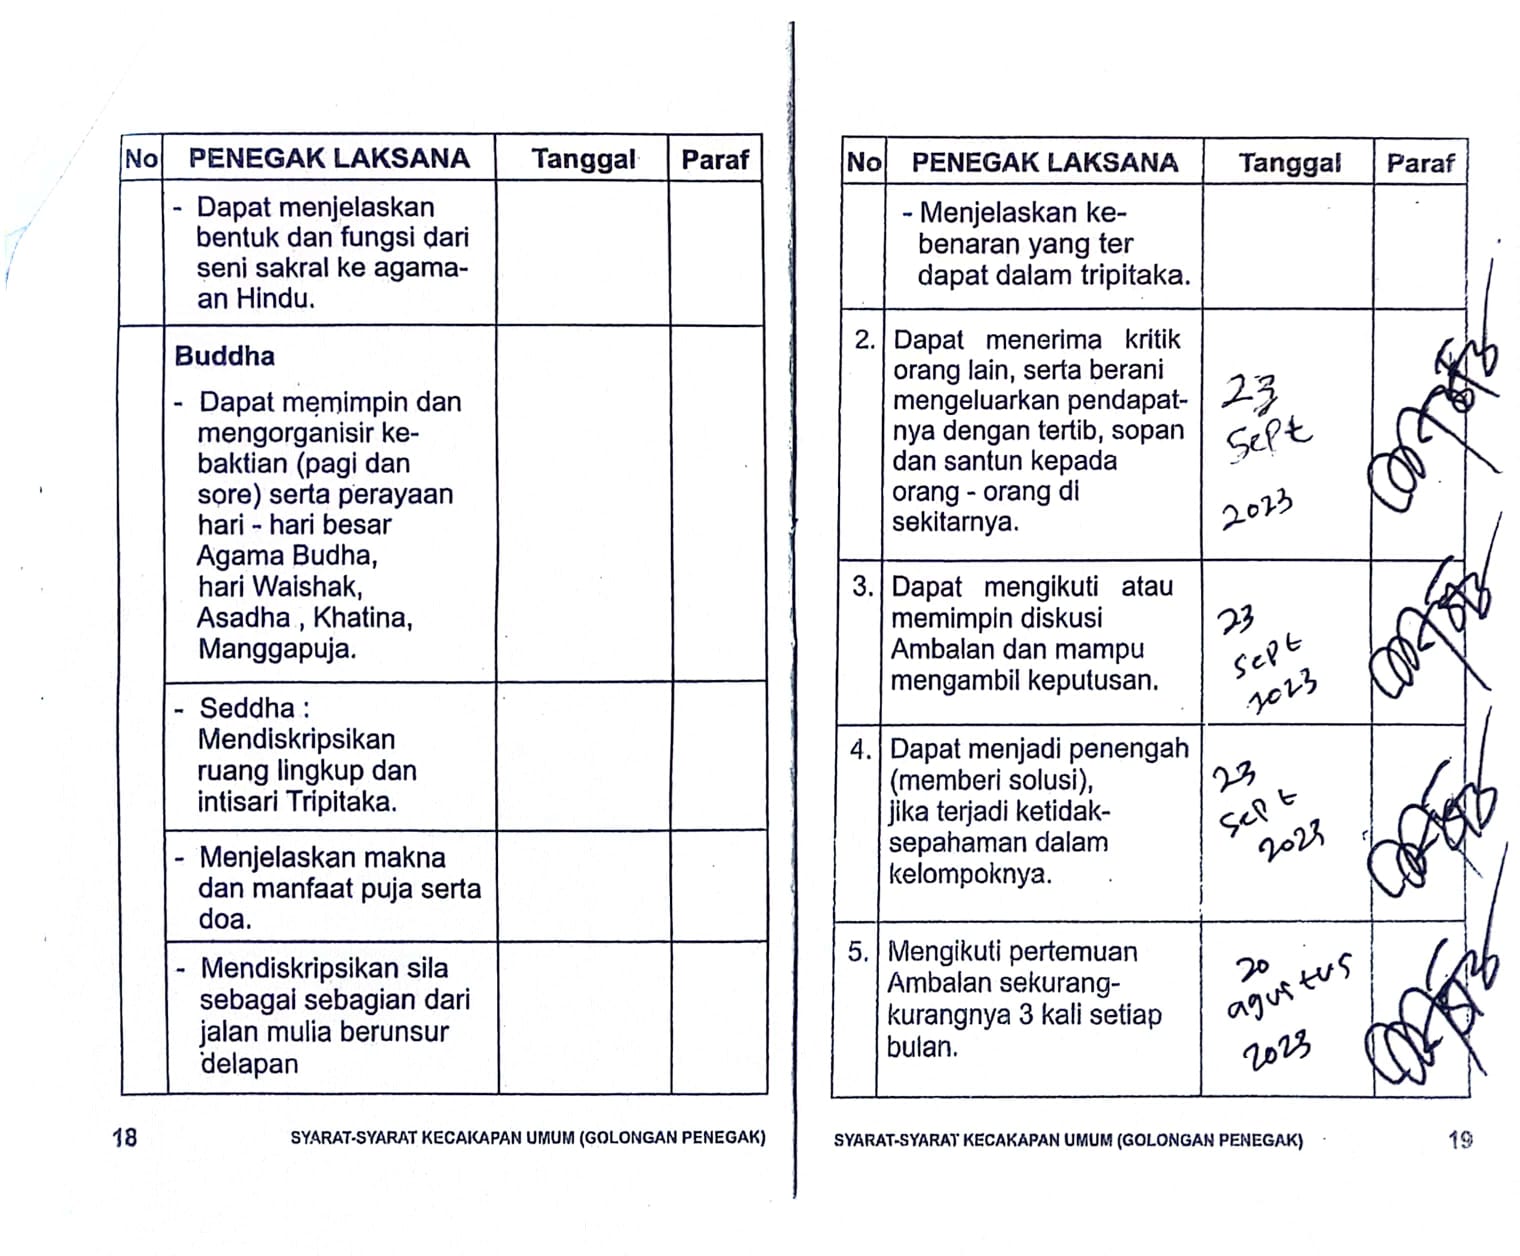 No PENEGAK LAKSANA Tanggal Paraf
- Dapat menjelaskan
bentuk dan fungsi dari
seni sakral ke agama-
an Hindu.
Buddha
- Dapat memimpin dan
mengorganisir ke-
baktian (pagi dan
sore) serta perayaan
hari - hari besar
Agama Budha,
hari Waishak,
Asadha , Khatina,
Manggapuja.
- Seddha :
Mendiskripsikan
ruang lingkup dan
intisari Tripitaka.
- Menjelaskan makna
dan manfaat puja serta
doa.
- Mendiskripsikan sila
sebagai sebagian dari
jalan mulia berunsur
delapan
18 SYARAT-SYARAT KECAKAPAN UMUM (GOLONGAN PENEGAK)
No PENEGAK LAKSANA Tanggal Paraf
- Menjelaskan ke-
benaran yang ter
dapat dalam tripitaka.
2. Dapat menerima kritik
orang lain, serta berani
mengeluarkan pendapat-
nya dengan tertib, sopan
dan santun kepada
orang - orang di
sekitarnya.
23
Sept
2023
3. Dapat mengikuti atau
memimpin diskusi
Ambalan dan mampu
mengambil keputusan.
23
Sept
2023
4. Dapat menjadi penengah
(memberi solusi),
jika terjadi ketidak-
sepahaman dalam
kelompoknya.
23
Sept
2023
5. Mengikuti pertemuan
Ambalan sekurang-
kurangnya 3 kali setiap
bulan.
20
agustus
2023
SYARAT-SYARAT KECAKAPAN UMUM (GOLONGAN PENEGAK) 19